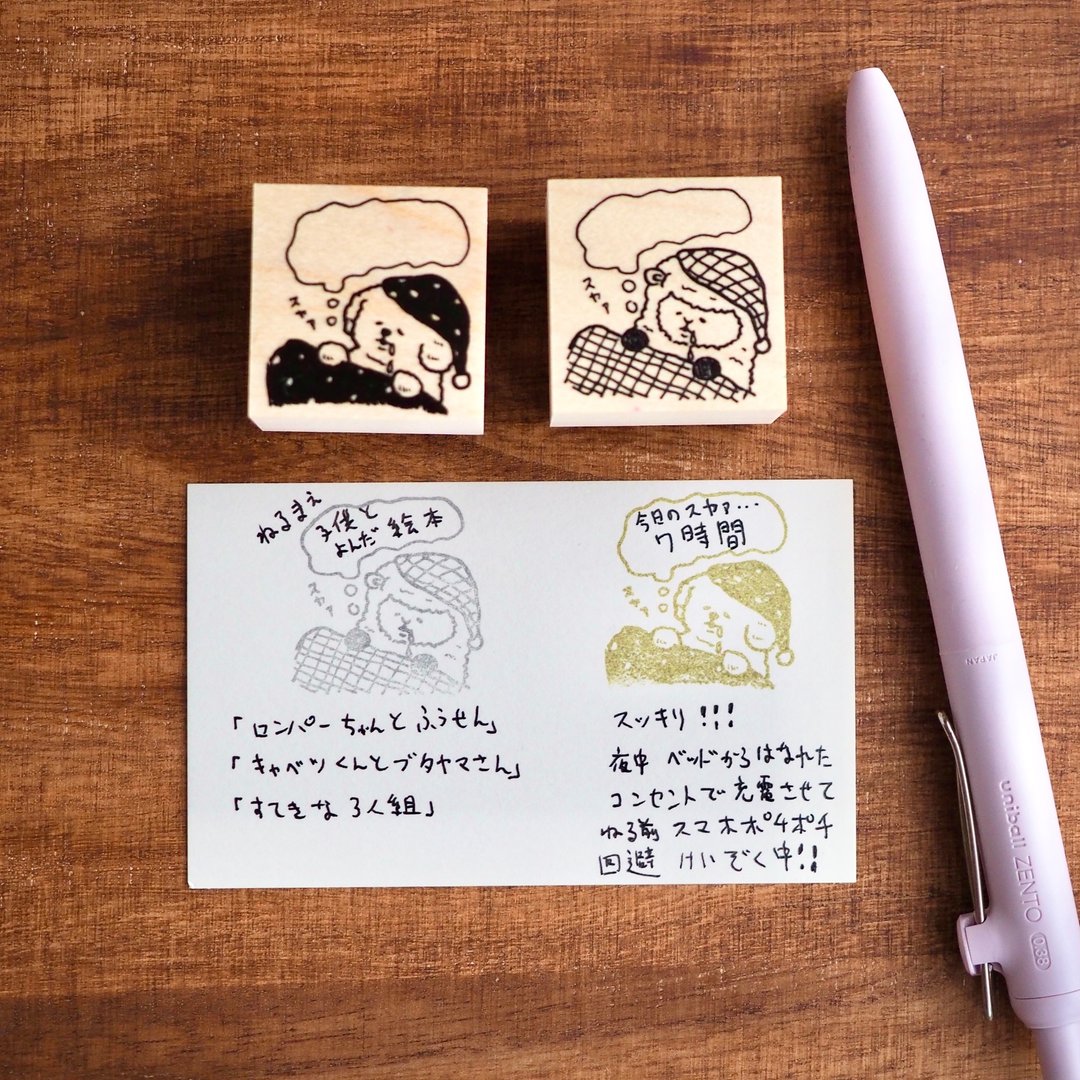 スヤァ
スヤァ
ねるまえ
子供と
よんだ 絵本
スヤァ
「ロンパーちゃんと ふうせん」
「キャベツくんとブタヤマさん」
「すてきな 3人組」
今日のスヤァ…
7時間
スヤァ
スッキリ!!!
夜中 ベッドからはなれた
コンセントで充電させて
ねる前 スマホポチポチ
回避 けいぞく中!!
JAPAN
uniball ZENTO 0.38